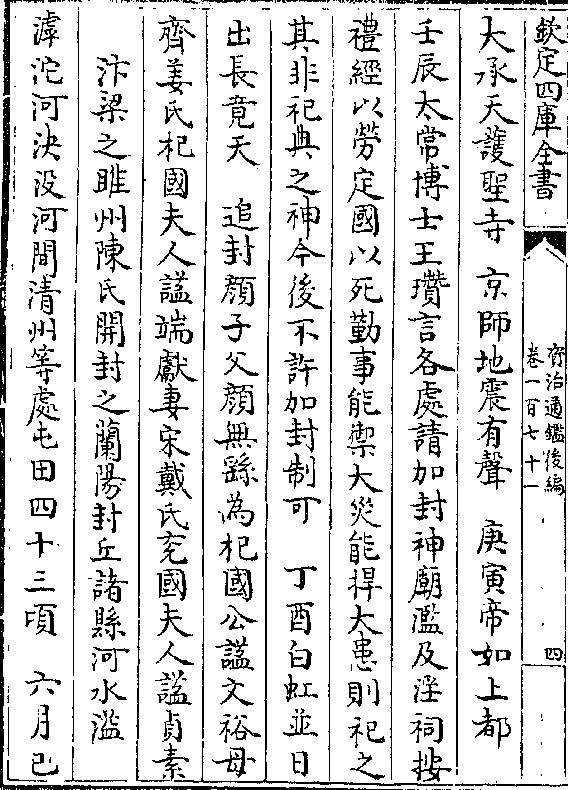 欽定四庫全書
資治通鑑後編
卷一百七十一
四
大承天護聖寺　京師地震有聲　庚寅帝如上都
壬辰太常博士王瓚言各處請加封神廟濫及淫祠按
禮經以勞定國以死勤事能禦大災能捍大患則祀之
其非祀典之神今後不許加封制可　丁酉白虹並日
出長竟天　追封顔子父顔無繇為杞國公諡文裕母
齊姜氏杞國夫人諡端獻妻宋戴氏兗國夫人諡貞素
汴梁之睢州陳氏開封之蘭陽封丘諸縣河水溢
滹沱河決没河間清州等處屯田四十三頃　六月己